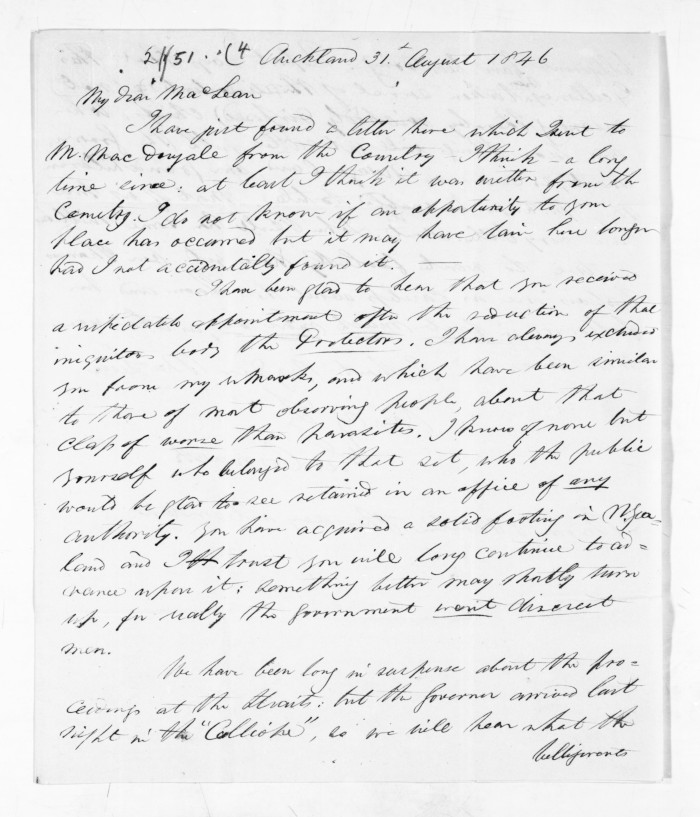 2 51 (4 Auckland 31st August 1846
My dear MacLean
I have just found a letter here which I sent to
M. MacDougale from the Cometry - I think - a long
time since: at least I think it was written from the
Cometry. I do not know if an opportunity to your
place has occurred but it may have lain here longer
had I not accidentally found it. -
I have been glad to hear that you received
a respectable appointment after the reduction of that
iniquitous body the Protectors. I have always excluded
you from my remarks, and which have been similar
to those of most observing people, about that
class of worse than parasites. I know of none but
yourself who belonged to that set, who the public
would be glad to see retained in an office of any
authority. You have acquired a solid footing in N. Zea=
land and I trust you will long continue to ad=
vance upon it: something better may shortly turn
up, for really the government want discreet
men.
We have been long in suspense about the pro=
ceedings at the Straits: but the Governor arrived last
night in the "Calliope", so we will hear what the
belligerents